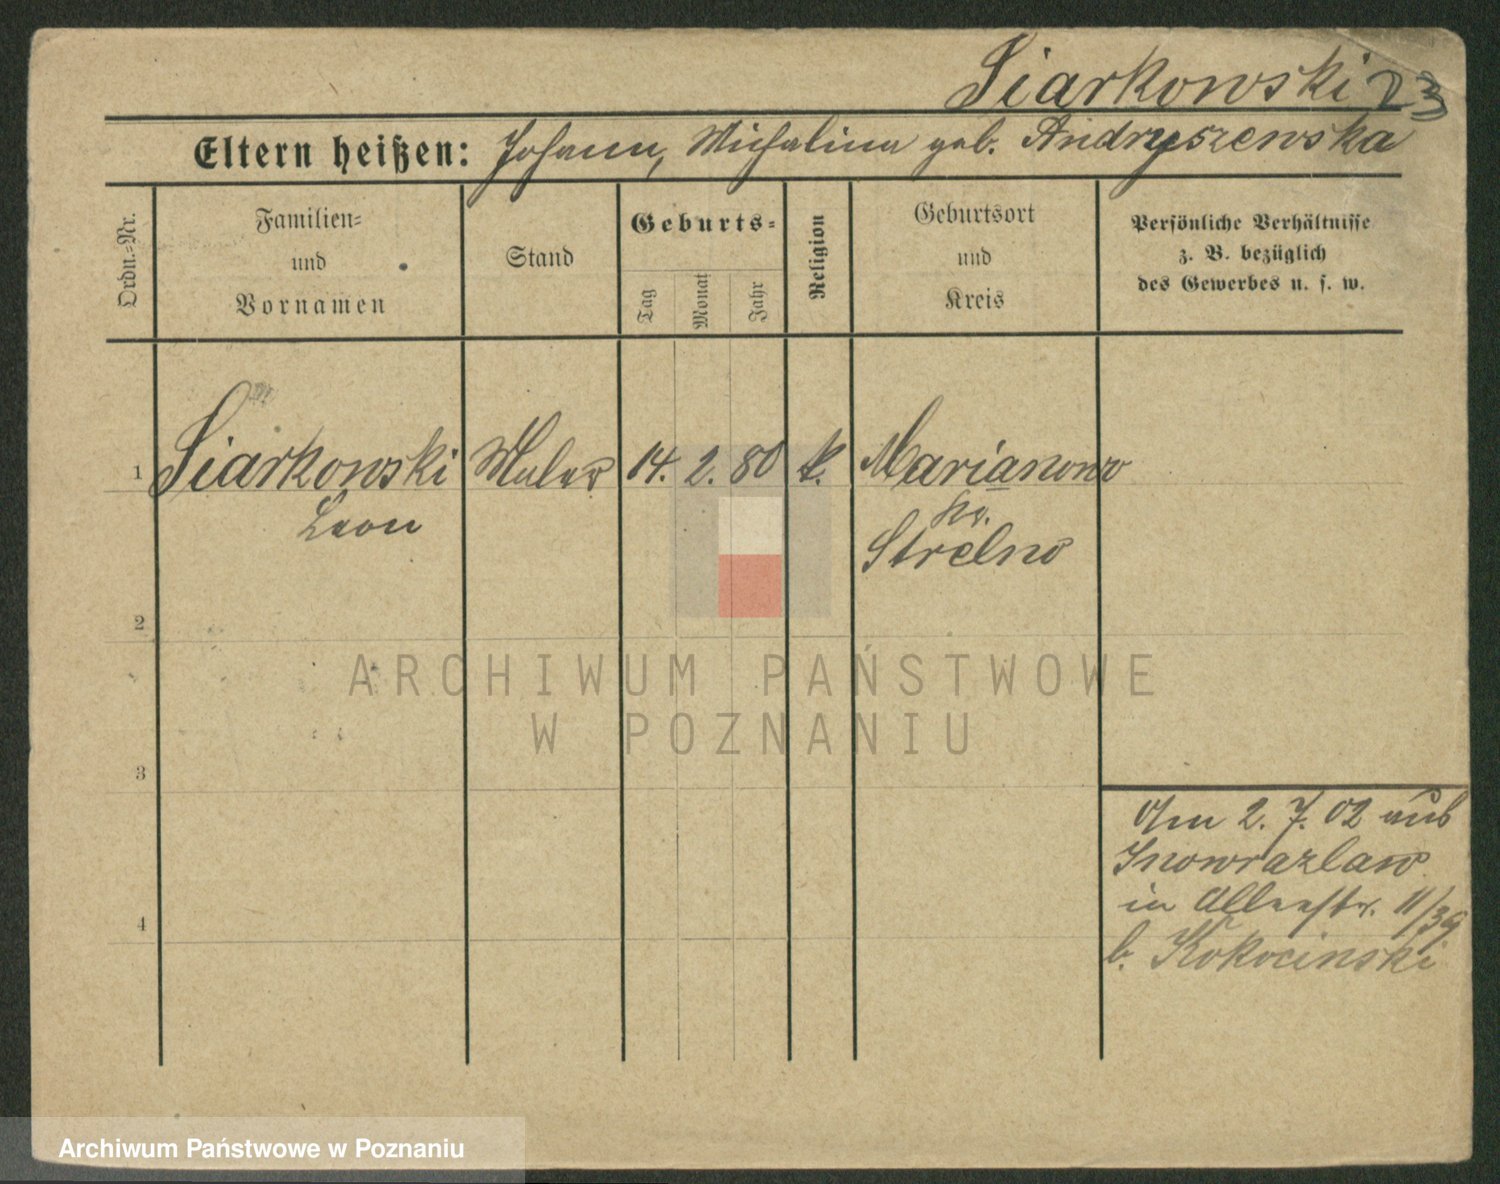 Siarkowski 23
Eltern heißen: Johann, Michalina geb. Andryszewska
Ordn.=Nr.
Familien=
und
Vornamen
Stand
Geburts=
Tag
Monat
Jahr
Religion
Geburtsort
und
Kreis
Persönliche Verhältnisse
z. B. bezüglich
des Gewerbes u. s. w.
1 Siarkowski Maler 14. 2. 80 k. Marianowo
Leon
Kr.
Strelno
2
ARCHIWUM PAŃSTWOWE
W POZNANIU
3
Am 2. 7. 02 aus
Inowrazlaw
in Alleestr. 11/39
b. Kokocinski
4
Archiwum Państwowe w Poznaniu